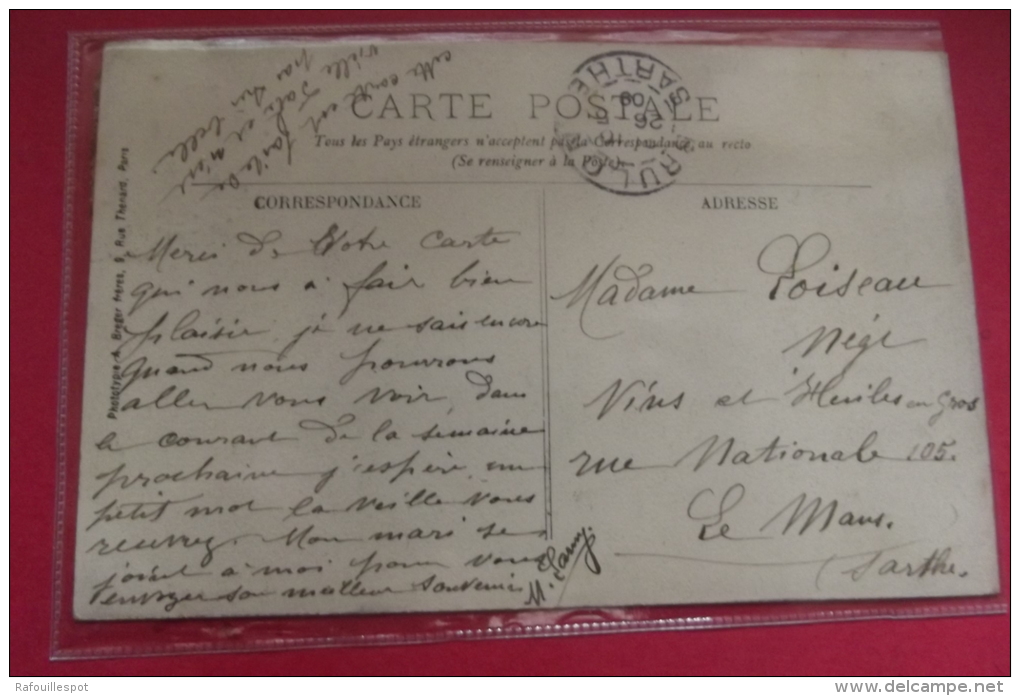 cette carte est
vieille sale et n'est
pas belle
CARTE POSTALE
Tous les Pays étrangers n'acceptent pas la Correspondance au recto
(Se renseigner à la Poste)
SARTHE
26
5
09
CORRESPONDANCE
ADRESSE
Phototypie A. Breger frères, 9, Rue Thenard, Paris
Merci de Votre carte
qui nous a fair bien
plaisir, je ne sais encore
quand nous pourrons
aller vous voir, dans
le courant de la semaine
prochaine j'espère, un
petit mot la veille vous
recevrez. Mon mari se
joint à moi pour vous
envoyer son meilleur souvenir
Madame Loiseau
Négt
Vins et Huiles en Gros
rue Nationale 105.
Le Mans.
Sarthe.
Rafouillespot
www.delcampe.net